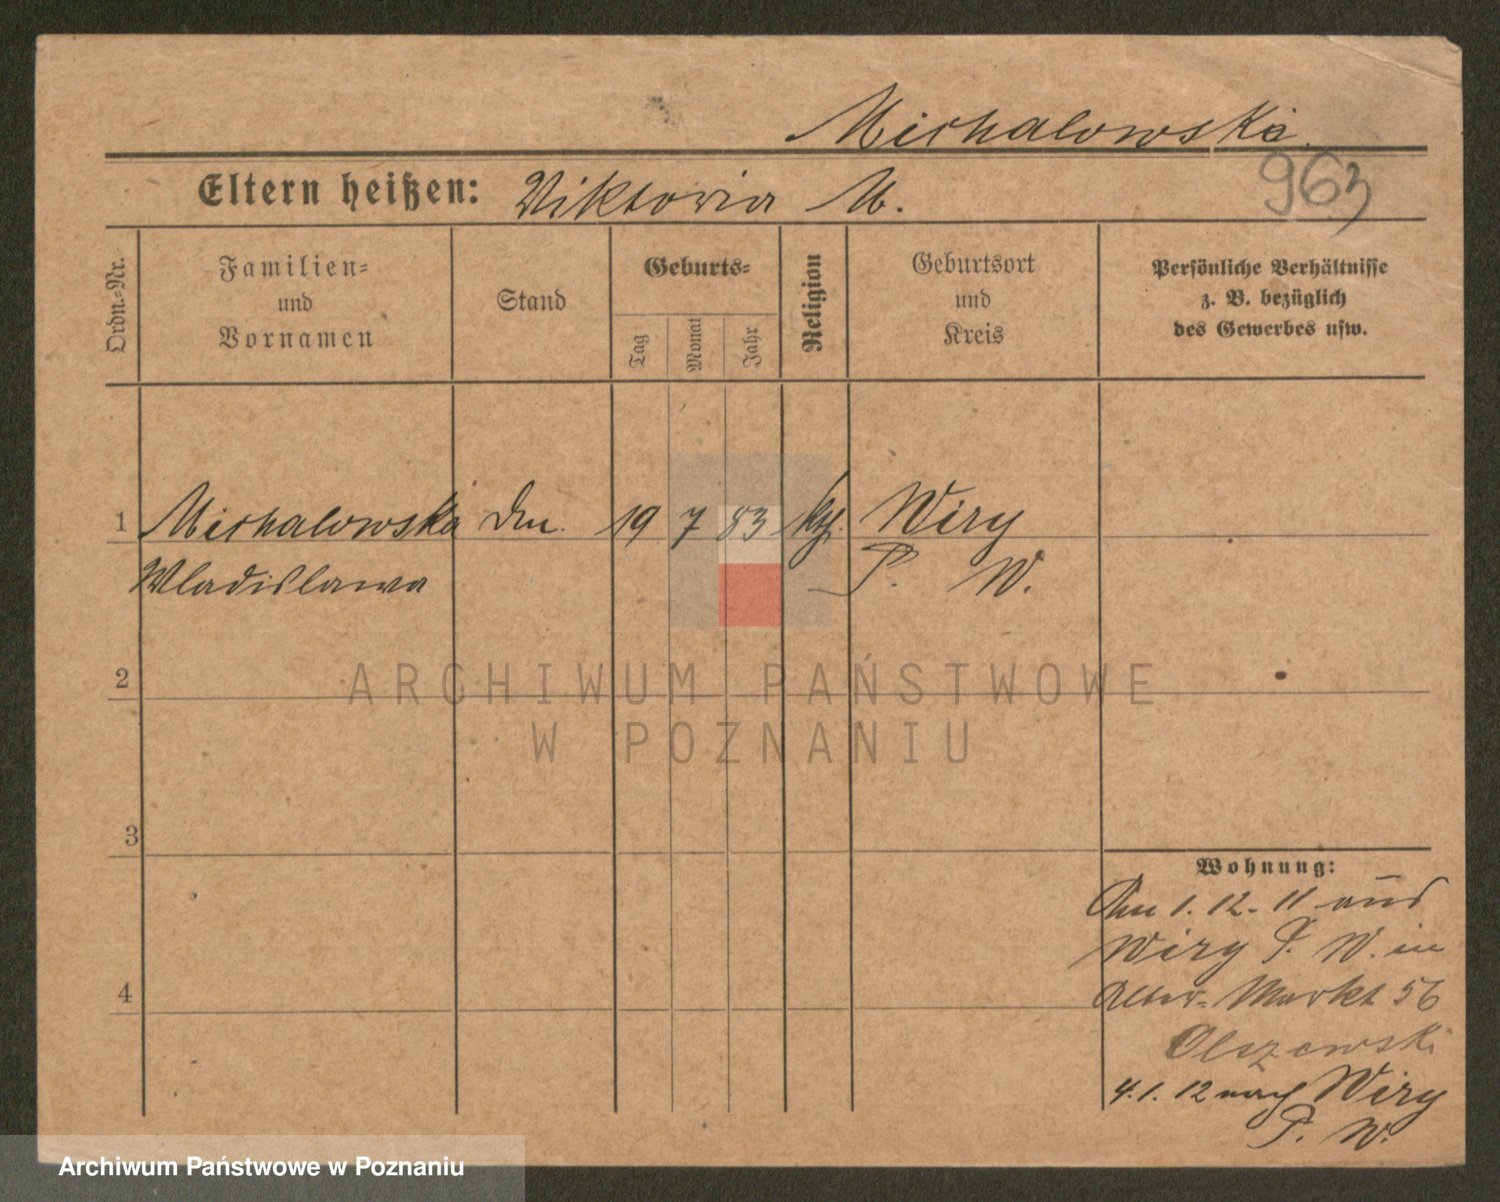 Michalowska
963
Eltern heißen: Viktoria M.
Ordn.-Nr.
Familien-
und
Vornamen
Stand
Geburts-
Tag
Monat
Jahr
Religion
Geburtsort
und
Kreis
Persönliche Verhältnisse
z. B. bezüglich
des Gewerbes usw.
1 Michalowska 19 7 83 Wiry
Wladislawa P. W.
2
ARCHIWUM PAŃSTWOWE
W POZNANIU
3
Wohnung:
Am 1. 12. 11 aus
Wiry P. W. in
4
Alter-Markt 56
Olszewski
4. 1. 12 nach Wiry
P. W.
Archiwum Państwowe w Poznaniu